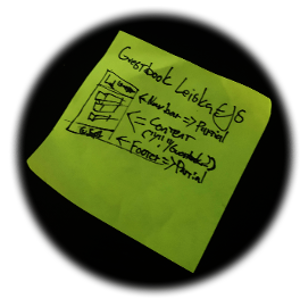 Guestbook Leiska EJS
<= Navbar => Partial
<= Content
<= Footer => Partial